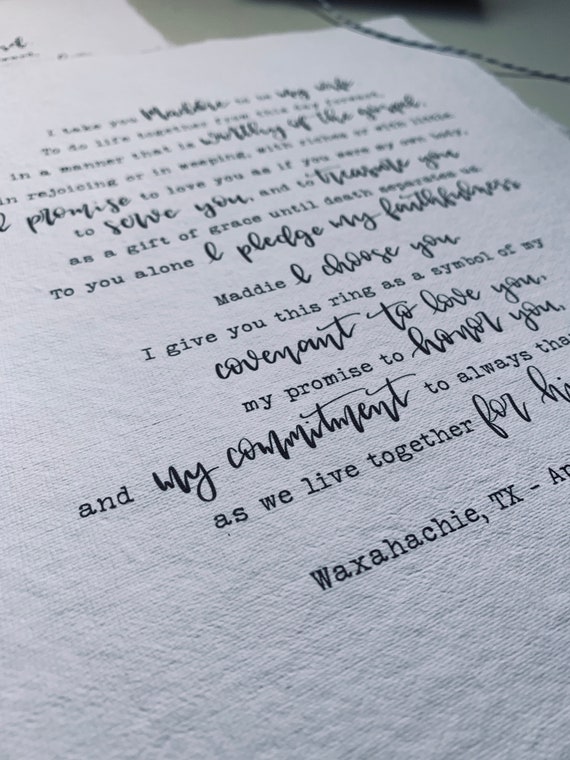 I take you Maddie to be my wife
To do life together from this day forward,
in a manner that is worthy of the gospel,
in rejoicing or in weeping, with riches or with little
I promise to love you as if you were my own body,
to serve you, and to treasure you
as a gift of grace until death separates us
To you alone I pledge my faithfulness
Maddie I choose you
I give you this ring as a symbol of my
covenant to love you,
my promise to honor you,
and my commitment to always
as we live together for
Waxahachie, TX -